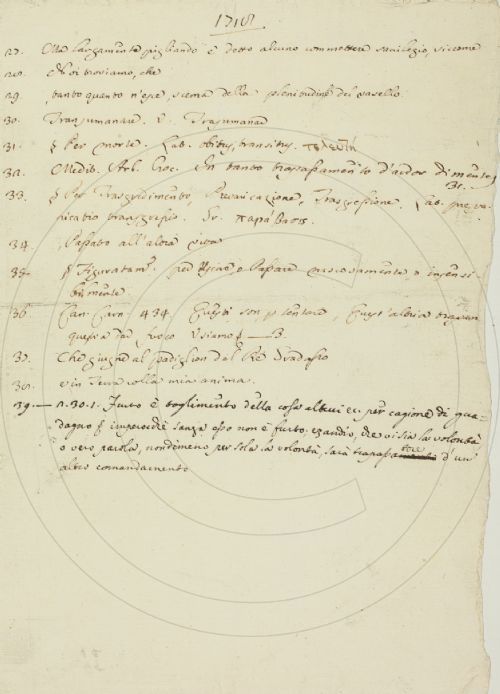 1718
27. Ma largamente pigliando è detto alcuno commettere sacrilegio, siccome
28. Noi troviamo, che
29. tanto quanto n'esce, scema della plenitudine del vasello.
30. Transumanare. V. Trasumanare
31. § Per morte. Lat. obitus, transitus. τελευτή
32. Medit. Arb. Croc. In tanto trapassamento d'ardor di mente
33. § Per Trasgredimento, Prevaricazione, Trasgressione. Lat. preva-
ricatio transgressio. Gr. παράβασις.
34. Passato all'altra vita
35. § Figuratam. per Passare nascosamente, o insensi-
bilmente.
36. Can. Carn. 434. Questi son
questa dal fuoco usiamo
37. Che giugne al padiglion del Re Gradasso
38. in terra colla mia anima.
39. — 2.30.1. Furto è toglimento della cosa altrui ec. per cagione di gua-
dagno § imperocchè sanza esso non è furto. ezandio, che vi sia la volontà
o vero parola, nondimeno per sola la volontà, sarà d'un
altro comandamento